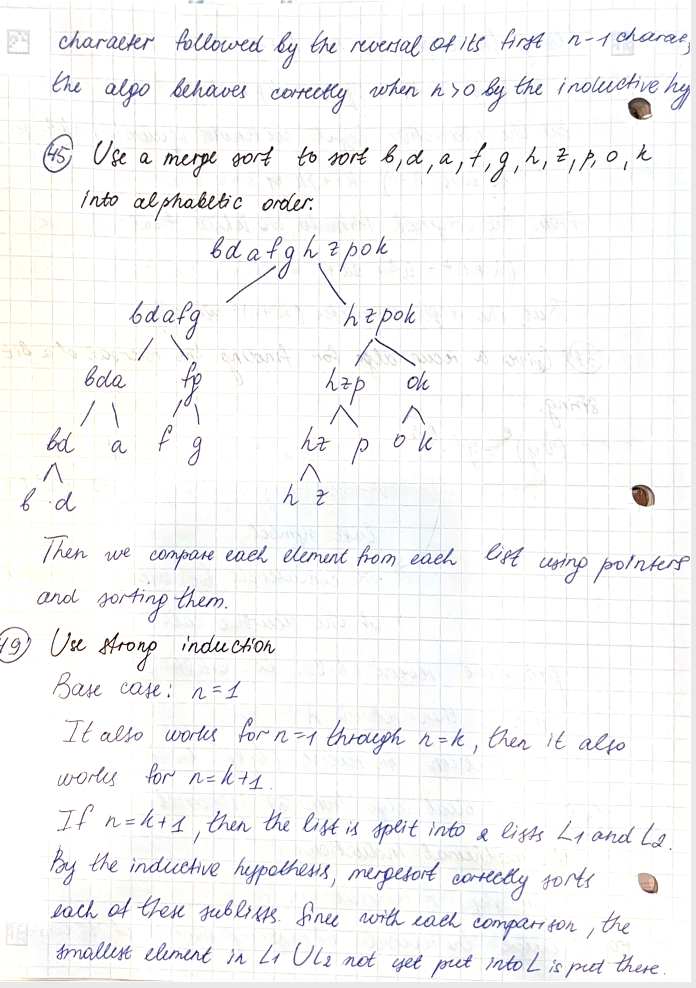 character followed by the reversal of its first n-1 charac
the algo behaves correctly when n>0 by the inductive hy
45 Use a merge sort to sort b, d, a, f, g, h, z, p, o, k
into alphabetic order.
bdafghzpok
bdafg hzpok
bda fg hzp ok
bd a f g hz p o k
b d h z
Then we compare each element from each list using pointers
and sorting them.
49 Use strong induction
Base case: n=1
It also works for n=1 through n=k, then it also
works for n=k+1.
If n=k+1, then the list is split into 2 lists L1 and L2.
By the inductive hypothesis, mergesort correctly sorts
each of these sublists. Since with each comparison, the
smallest element in L1 ∪ L2 not yet put into L is put there.